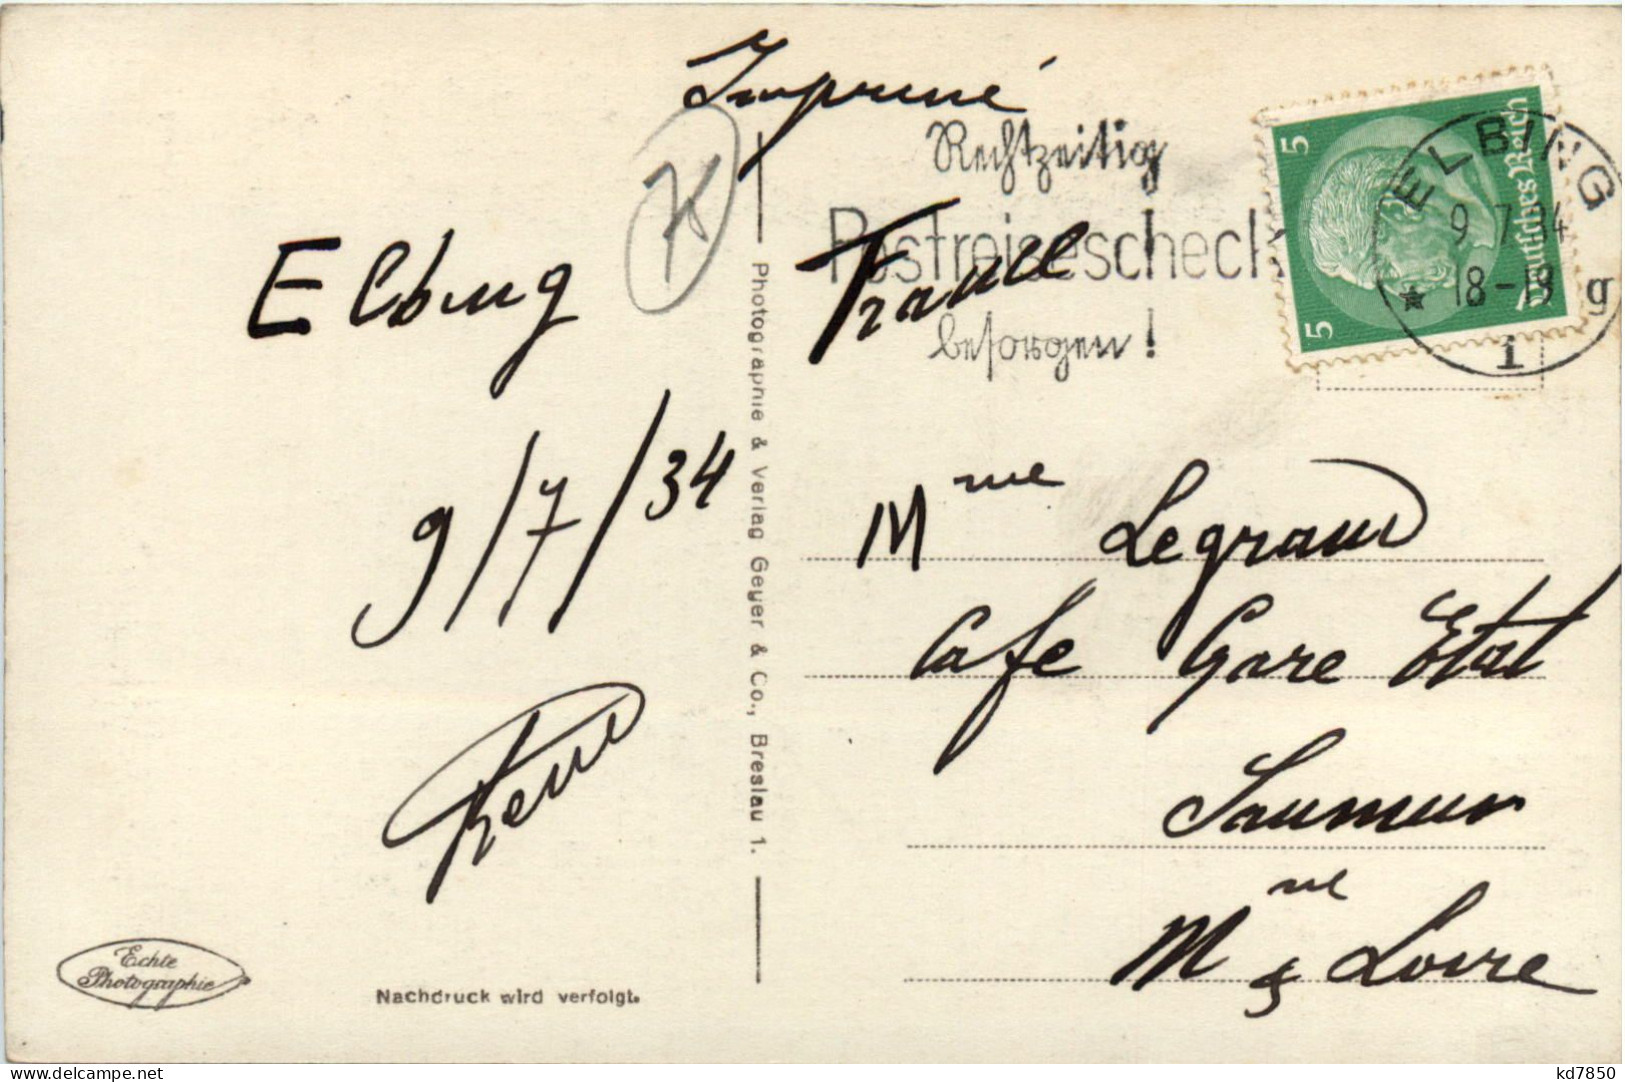 Imprimé
Rechtzeitig
Postreisescheck
besorgen!
France
5
5
Deutsches Reich
ELBING
9.7.34
18-19
g
i
Elbing
9/7/34
René
Photographie & Verlag Geyer & Co., Breslau 1.
Mme Legrand
Cafe Gare Etat
Saumur
Mne & Loire
Echte
Photographie
Nachdruck wird verfolgt.
delcampe.net
kd7850